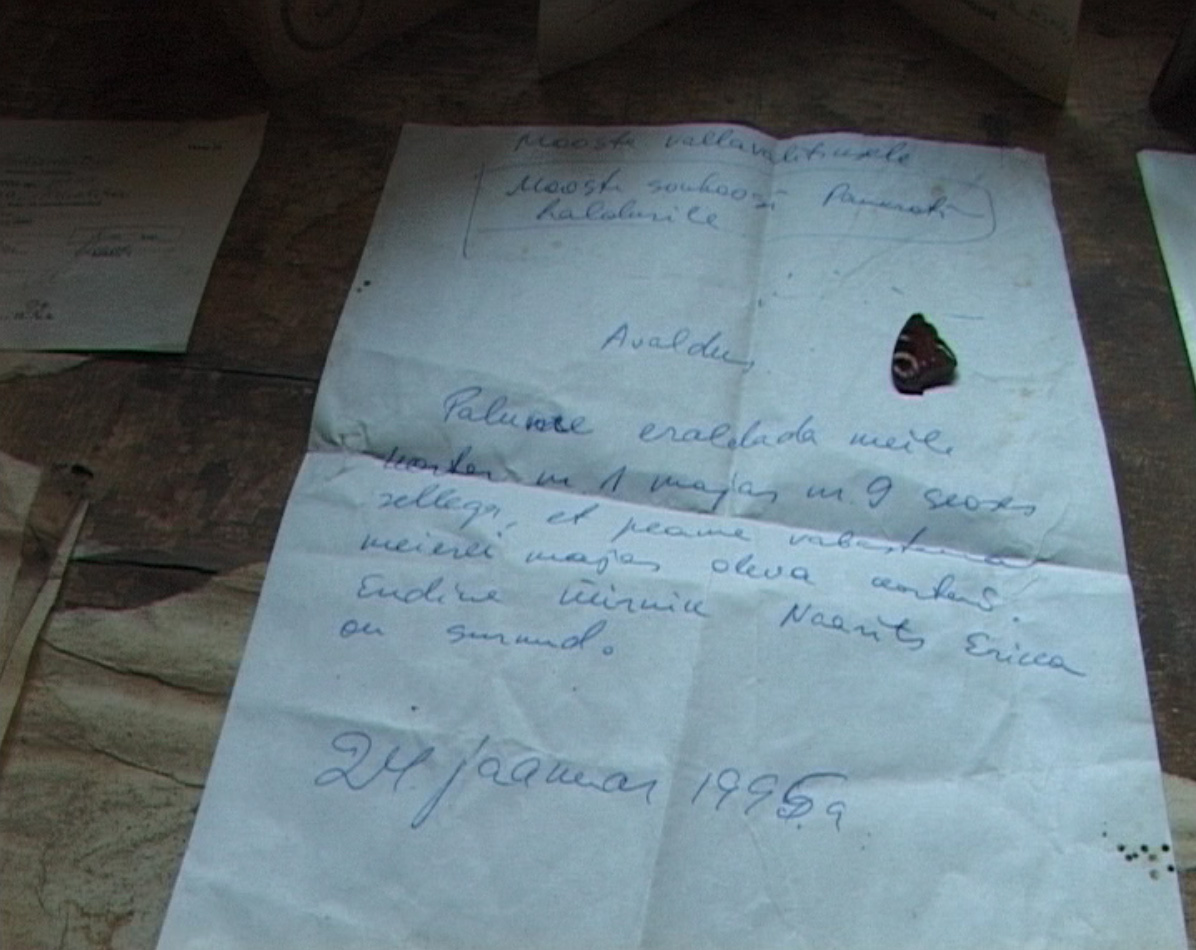 Mooste vallavalitsusele
Mooste sovhoosi Pankroti
haldurile
Avaldus
Palume eraldada meile
korter nr. 1 majas nr. 9 seoses
sellega, et peame vabastama
meierei majas oleva korteri.
Endine üürnik Naarits Erika
on surnud.
24. jaanuar 1995.a